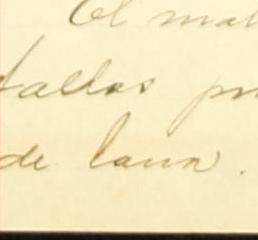 El mal
tallos pr
de lana.